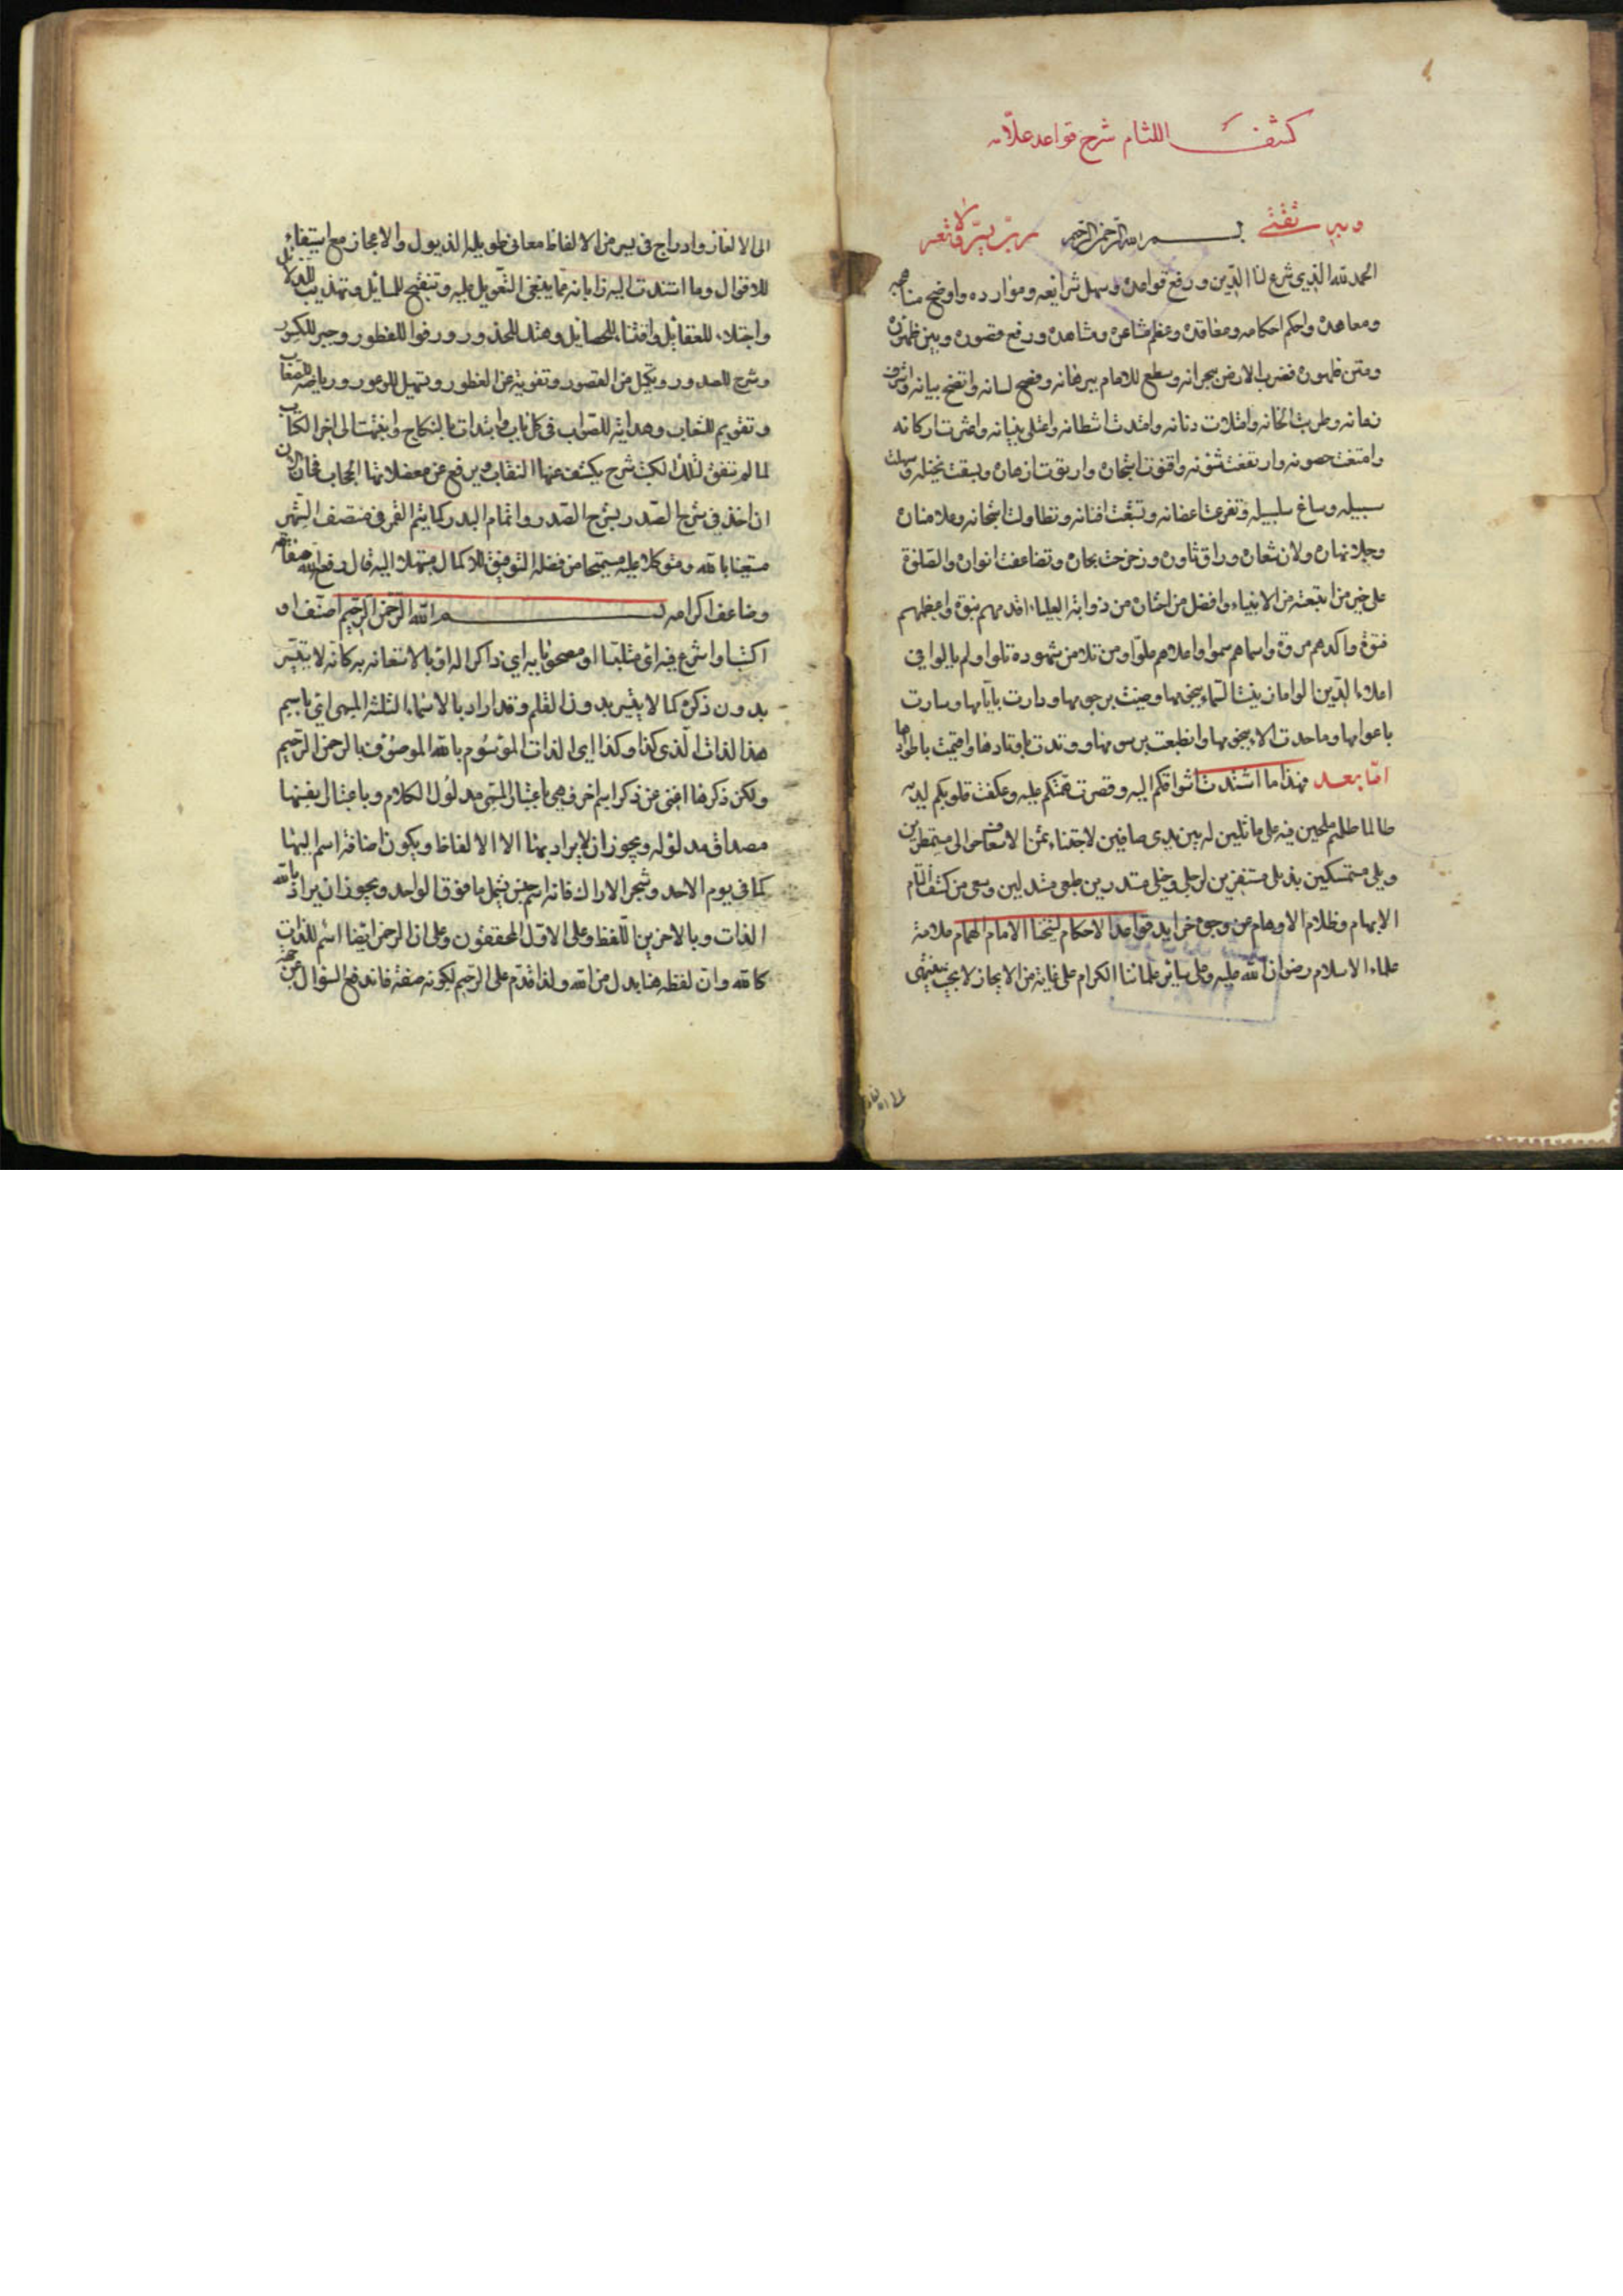 كشف اللثام شرح قواعد علامه
وبه ثقتي بسم الله الرحمن الرحيم رب يسر ولا تعسر
الحمد لله الذي شرع لنا الدين ورفع قواعده وسهل شرايعه وموارده واوضح مناهجه
ومعاهده واحكم احكامه ومعاقده وعظم مشاعره ومشاهده ورفع قصوره وبين
ومتن ظهوره فضرب الارض بجرانه وسطع للامام برهانه وفصح لسانه واتضح بيانه
وطربت الحانه وامتلات دنانه وامتدت اشطانه واعتلى بنيانه واركانه
وامتنعت حصونه وارتفعت واريقت ازهاره وبسقت نخيله
سبيله وساغ سلسبيله وتفرعت اغصانه وتشعبت افنانه وتطاولت اشجانه وعلا مناره
وجلا نهاره ولان شعاره وراق وزخرت بحاره وتضاعفت انواره والصلوة
على خير من ابتعثه من الانبياء وافضل من اختاره من ذوابة العلياء اقدمهم نبوة واعظمهم
فتوة واكدهم مروة واسماهم سموا واعلاهم علوا ومن تلا من شهوده تلوا ولم يالوا في
املاء الدين الواما زينت السماء بنجومها وحيث برجومها ودارت بآيامها وسارت
باعوامها وما حدت الاء بتخومها وانطبعت برسومها ووتدت باوتادها واقيمت باطوادها
اما بعد فهذا ما اشتدت اشواقكم اليه وقصرت همتكم عليه وعكفت قلوبكم لديه
طالما ظللتم ملحين فيه على ماثلين له بين يدي صافين لاجتناء
وبلى متمسكين بذيلى مستفزين لرجلي وخيلي
الابهام وظلام الاوهام عن وجوه خرايد قواعد الاحكام لشيخنا الامام الهمام علامة
علماء الاسلام رضوان الله عليه وعلى ساير علمائنا الكرام على غاية من الايجاز لا يجب
الى الالغاز وادراج في يسير من الالفاظ معاني طويلة الذيول والاعجاز مع استيفاء
للاقوال وما استندت اليه زايا به مما ينبغي التعويل عليه وتنقيح للمسائل وتهذيب للدلائل
واجتلاء للعقايل واقتناء للخصايل وهتك للخدور ورفوا للفطور وجبر للكسور
وشرح للصدور وتكميل من القصور وتقوية عن الفطور وتسهيل للوعور ورياضة للصعاب
وتقويم للشعاب وهداية للصواب في كل باب وابتدات بالنكاح وانتهيت الى اخر الكتاب
لما لم يتفق لتلك الكتب شرح يكشف عنها النقاب ويرفع عن معضلاتها الحجاب فحان الان
ان اخذ في شرح الصدر بشرح الصدر واتمام البدر كما يتم القمر في منتصف الشهر
مستعينا بالله ومتوكلا عليه مستميحا من فضله التوفيق للاكمال مبتهلا اليه قال رفع الله مقامه
وضاعف اكرامه بسم الله الرحمن الرحيم اصنف او
اكتب او اشرع فيه اي متلبسا او مصحوبا به اي ذاكرا له او بالاستعانة به كانه لا يتيسر
بدون ذكره كما لا يتيسر بدون القلم وقد اراد بالاسماء الثلثة المسمى اي باسم
هذا الذات الذي كذا وكذا اي الذات الموسوم بالله الموصوف بالرحمن الرحيم
ولكن ذكرها اغنى عن ذكر اسم اخر فهي باعتبار المسمى مدلول الكلام وباعتبار انفسها
مصداق مدلوله ويجوز ان لا يراد بهنا الا الالفاظ ويكون اضافة اسم اليها
كما في يوم الاحد وشجر الاراك فانه اسم جنس يشمل ما فوق الواحد ويجوز ان يراد بالله
الذات وبالاخرين اللفظ وعلى الاول المحققون وعلى ان الرحمن ايضا اسم للذات
كالله وان لفظه هنا بدل من الله ولذا قدم على الرحيم لكونه صفة فاندفع السؤال عن